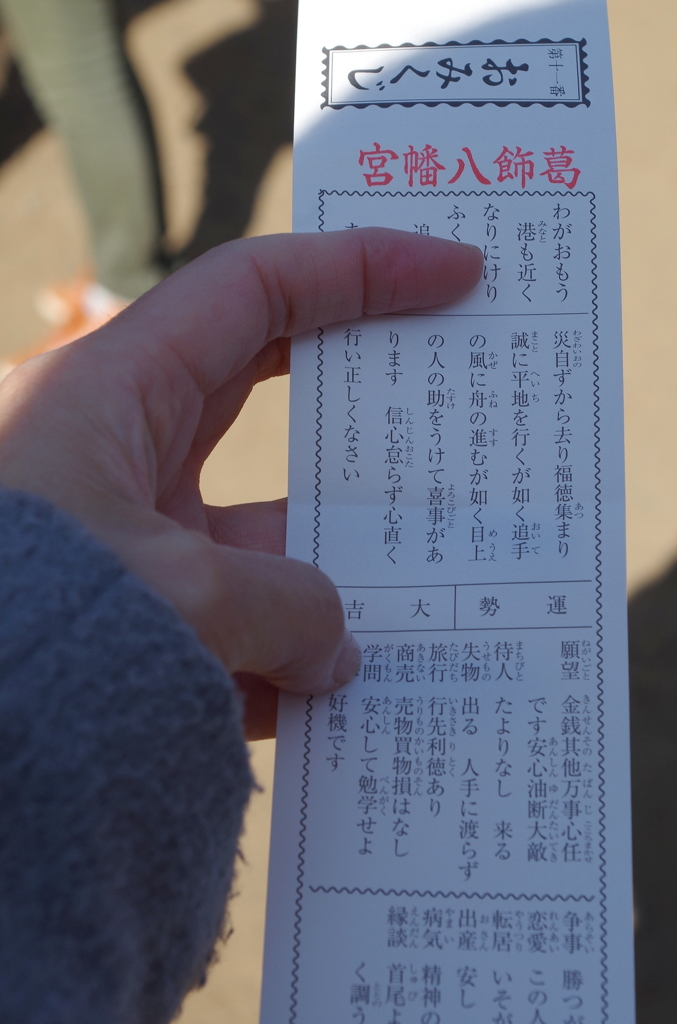 第十一番
おみくじ
葛飾八幡宮
わがおもう
港も近く
なりにけり
ふく
追
災自ずから去り福徳集まり
誠に平地を行くが如く追手
の風に舟の進むが如く目上
の人の助をうけて喜事があ
ります 信心怠らず心直く
行い正しくなさい
運勢 大吉
願望 金銭其他万事心任
です安心油断大敵
待人 たよりなし 来る
失物 出る 人手に渡らず
旅行 行先利徳あり
商売 売物買物損はなし
学問 安心して勉学せよ
好機です
争事 勝つが
恋愛 この人
転居 いそが
出産 安し
病気 精神の
縁談 首尾よ
く調う